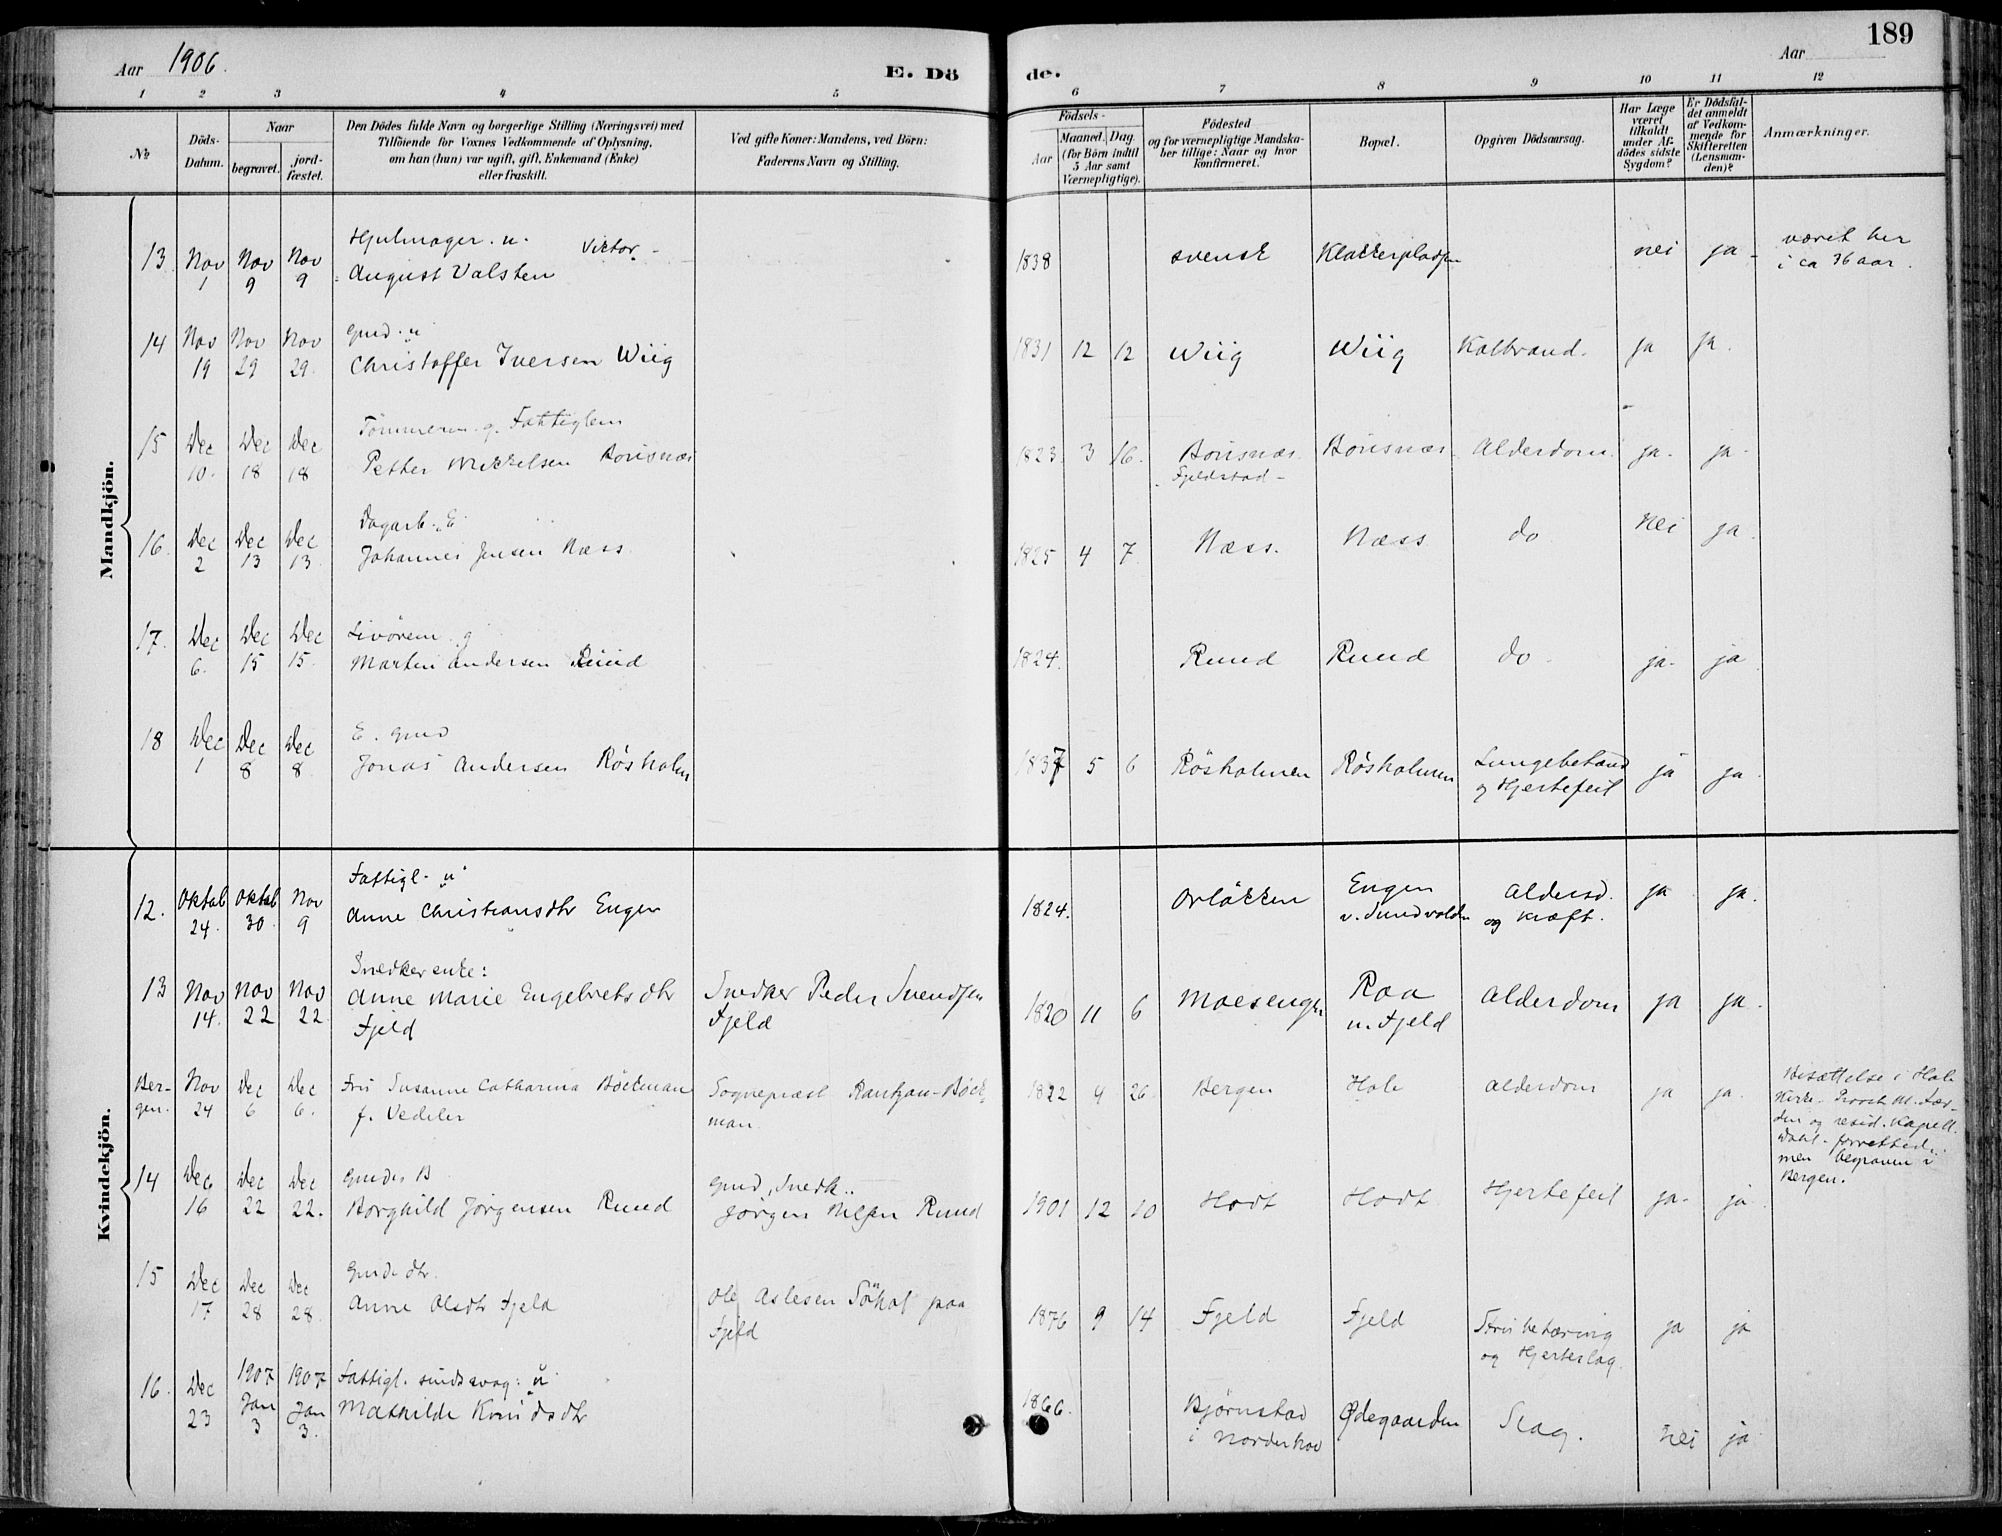 189
Aar 1906.
E. Dö de.
Aar
1 2 3 4 5 6 7 8 9 10 11 12
№
Döds-Datum.
Naar
begravet.
jord-fæstet.
Den Dödes fulde Navn og borgerlige Stilling (Næringsvei) med
Tilföiende for Voxnes Vedkommende af Oplysning,
om han (hun) var ugift, gift, Enkemand (Enke)
eller fraskilt.
Ved gifte Koner: Mandens, ved Börn:
Faderens Navn og Stilling.
Födsels-
Aar
Maaned. Dag
(for Börn indtil
5 Aar samt
Værnepligtige).
Födested
og for værnepligtige Mandska-
ber tillige: Naar og hvor
konfirmeret.
Bopæl.
Opgiven Dödsaarsag.
Har Læge
været
tilkaldt
under Af-
dödes sidste
Sygdom?
Er Dödsfal-
det anmeldt
af Vedkom-
mende for
Skifteretten
(Lensman-
den)?
Anmærkninger.
Mandkjön.
13 Nov 1 Nov 9 Nov 9
Hjulmager. u. Victor
August Valsten
1838 svensk Klækkerpladsen nei ja
været her
i ca 36 aar.
14 Nov 19 Nov 29 Nov 29
Gmd. u
Christoffer Iversen Wiig
1831 12 12 Wiig Wiig Kolbrand. ja ja.
15 Dec 10. Dec 18 Dec 18
Tömmerm. g. Fattiglem
Petter Mikkelsen Bönsnæs
1823 3 16. Bönsnæs Bönsnæs Alderdom ja. ja.
Fjeldstad
16. Dec 2 Dec 13 Dec 13
Dagarb. E
Johannes Jensen Næss
1825 4 7. Næss. Næss do nei ja
17. Dec 6. Dec 15 Dec 15.
g
Martin Andersen Ruud
1824. Ruud Ruud do. ja. ja
18 Dec 1 Dec 8 Dec 8
E. Gmd
Jonas Andersen Røsholm
1837 5 6 Røsholmen Røsholmen Lungebetænd
og Hjertefeil ja ja
Kvindekjön.
12. Oktob 24. Oktob 30 Nov 9
Fattigl. u.
Anne Christiansdtr Engen
1824. Orløkken Engen
v. Sundvolden
Aldersd.
og kræft. ja ja.
13 Nov 14. Nov 22 Nov 22
Snedkerenke:
Anne Marie Engebretsdtr
Fjeld
Snedker Peder Svendsen
Fjeld
1820 11 6 Moesengen Raa
u. Fjeld
Alderdom ja ja.
Bergen. Nov 24 Dec 6 Dec 6.
Fru Susanne Catharina Böckman
f. Vedeler
Sogneprest Rantzau-Böck-
man
1822 4 26. Bergen Hole Alderdom ja ja.
Bisættelse i Hole
Kirke. Provst M. Fær-
den og resid. Kapell.
Dahl. forrettede
men begraven i
Bergen.
14 Dec 16 Dec 22 Dec 22.
Gmds B
Borghild Jørgensen Ruud
Gmd, Snedk.
Jørgen Nilsen Ruud
1901 12 10 Hodt Hodt Hjertefeil ja. ja
15 Dec 17 Dec 28 Dec 28.
Gmds dtr.
Anne Olsdtr Fjeld
Ole Aslesen Søhol paa
Fjeld
1876 9 14 Fjeld Fjeld
og Hjerteslag. ja ja
16. Dec 23 1907 Jan 3 1907 Jan 3.
Fattigl. sindssvag: u
Mathilde Knudsdtr
1866. Bjørnstad
i Norderhov
Ødegaarden Slag. nei ja